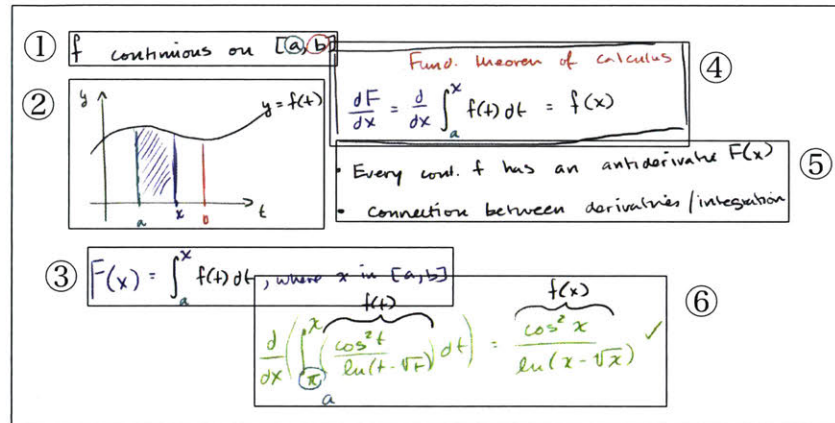 ① f continuous on [a, b]
② y y = f(t)
a x b t
③ F(x) = ∫_a^x f(t) dt, where x in [a, b]
④ Fund. theorem of calculus
dF/dx = d/dx ∫_a^x f(t) dt = f(x)
⑤ • Every cont. f has an antiderivative F(x)
• connection between derivatives/integration
⑥ f(t) f(x)
d/dx (∫_π^x (cos² t / ln(t - √t)) dt) = cos² x / ln(x - √x) ✓
a